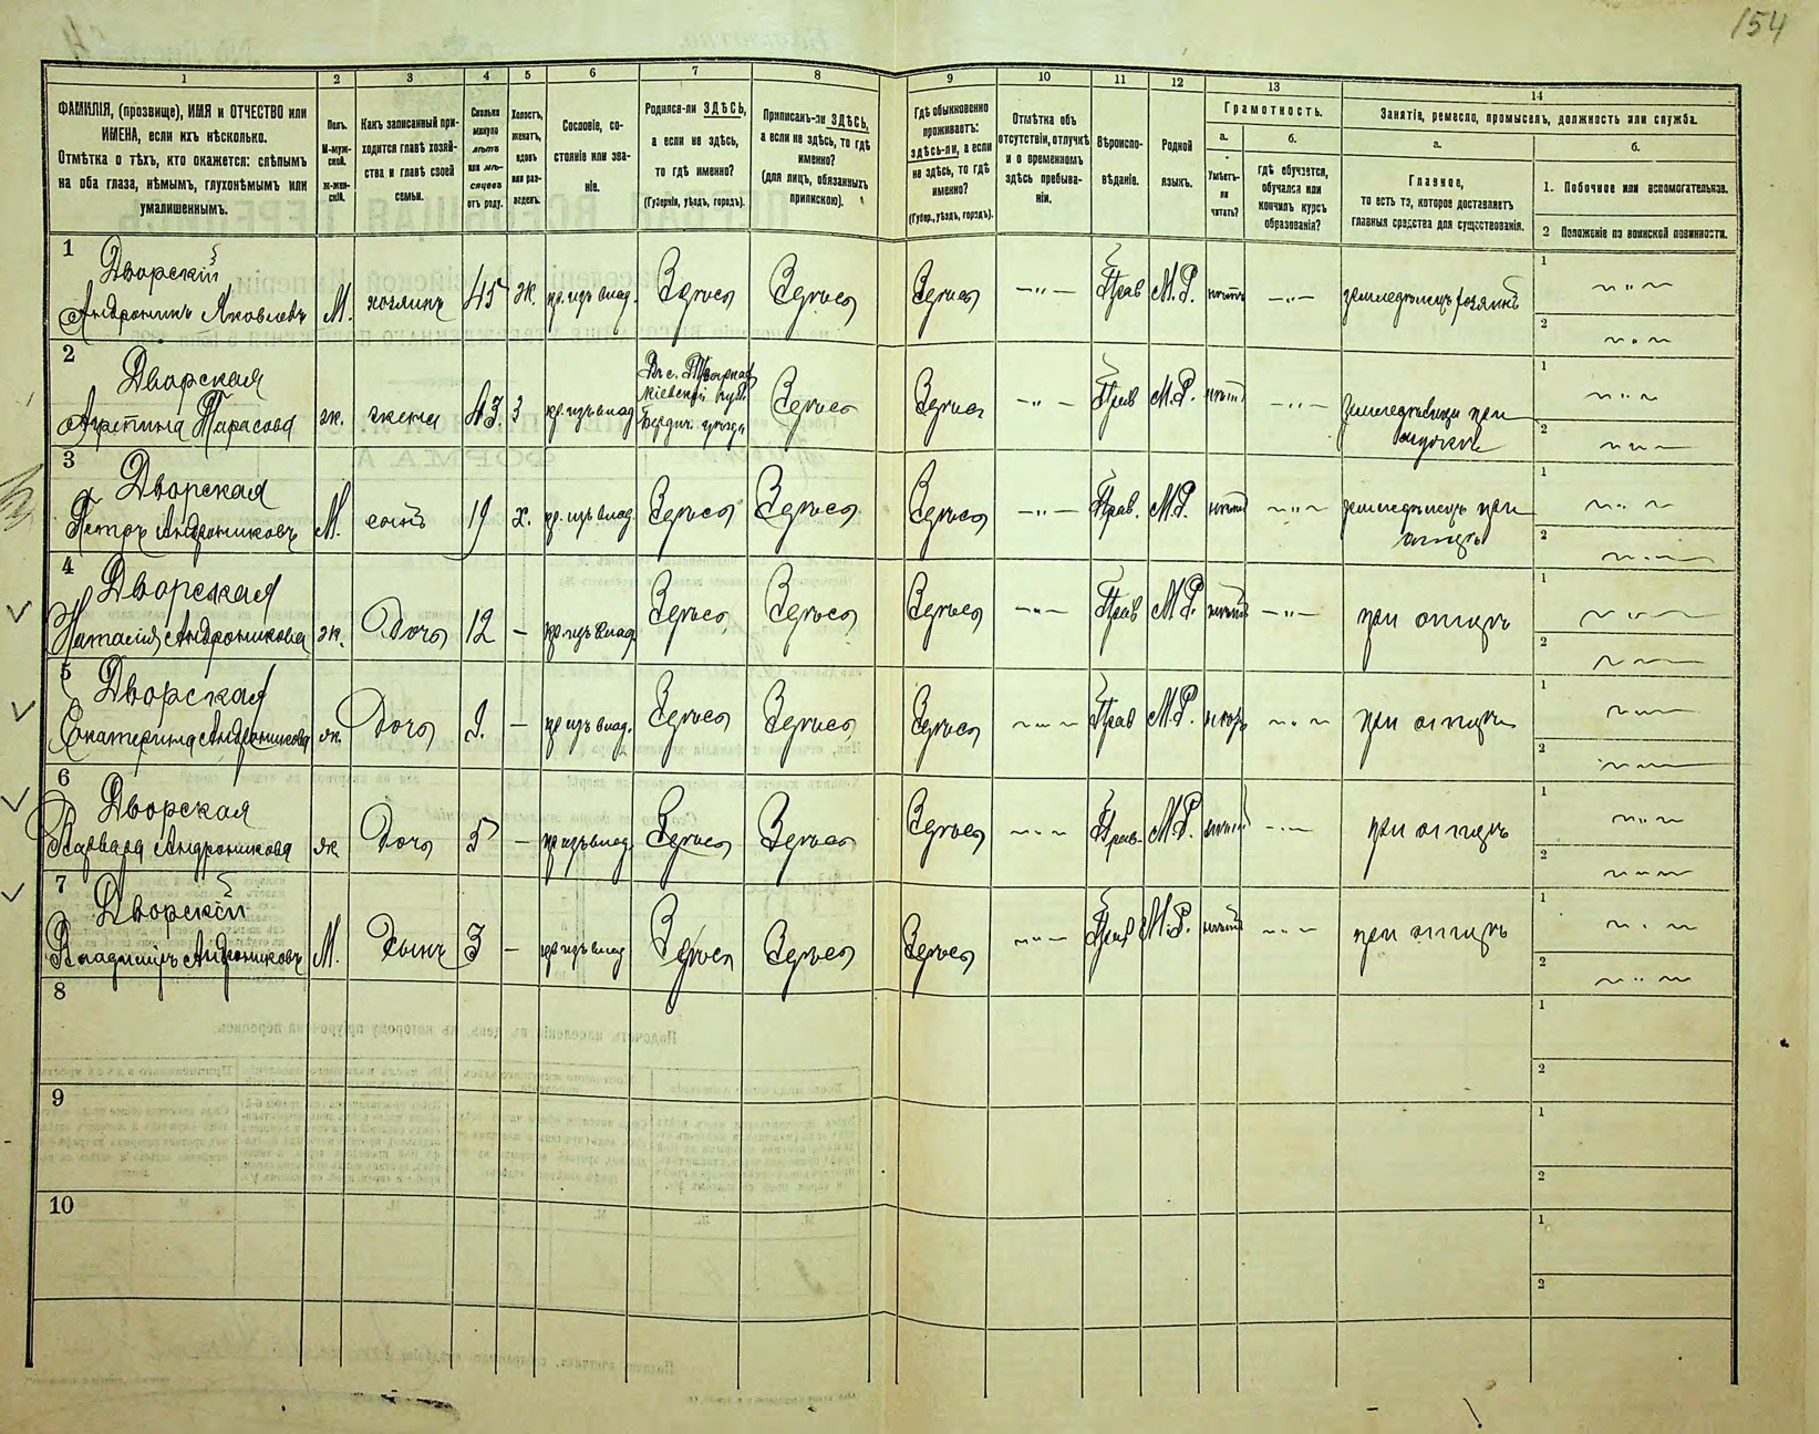 154
1
2
3
4
5
6
7
8
9
10
11
12
13
14
ФАМИЛІЯ, (прозвище), ИМЯ и ОТЧЕСТВО или
ИМЕНА, если ихъ нѣсколько.
Отмѣтка о тѣхъ, кто окажется: слѣпымъ
на оба глаза, нѣмымъ, глухонѣмымъ или
умалишеннымъ.
Полъ.
М-муж-
ской.
Ж-жен-
скій.
Какъ записанный при-
ходится главѣ хозяй-
ства и главѣ своей
семьи.
Сколько
минуло
лѣтъ
или мѣ-
сяцевъ
отъ роду.
Холостъ,
женатъ,
вдовъ
или раз-
веденъ.
Сословіе, со-
стояніе или зва-
ніе.
Родился-ли ЗДѢСЬ,
а если не здѣсь,
то гдѣ именно?
(Губернія, уѣздъ, городъ).
Приписанъ-ли ЗДѢСЬ,
а если не здѣсь, то гдѣ
именно?
(для лицъ, обязанныхъ
припискою).
Гдѣ обыкновенно
проживаетъ:
здѣсь-ли, а если
не здѣсь, то гдѣ
именно?
(Губер., уѣздъ, городъ).
Отмѣтка объ
отсутствіи, отлучкѣ
и о временномъ
здѣсь пребыва-
ніи.
Вѣроиспо-
вѣданіе.
Родной
языкъ.
Грамотность.
а.
Умѣетъ-
ли
читать?
б.
Гдѣ обучается,
обучался или
кончилъ курсъ
образованія?
Занятіе, ремесло, промыселъ, должность или служба.
а.
Главное,
то есть то, которое доставляетъ
главныя средства для существованія.
б.
1. Побочное или вспомогательное.
2 Положеніе по воинской повинности.
1
Дворскій
Андроникъ Яковлевъ М. хозяинъ 45 ж. кр. изъ влад. Здѣсь Здѣсь Здѣсь —"— Прав М.Р. нѣтъ —"— земледѣлецъ хозяинъ
1
2
2
Дворская
Агрепина Тарасова ж. жена 43. з кр. изъ влад
Кіевской губ.
Бердич. уѣзда
Здѣсь Здѣсь —"— Прав М.Р. нѣтъ —"— при
мужѣ
1
2
3
Дворская
Петръ Андрониковъ М. сынъ 19 х. кр. изъ влад. Здѣсь Здѣсь Здѣсь —"— Прав. М.Р. нѣтъ —"— земледѣлецъ при
отцѣ
1
2
4
Дворская
Наталія Андроникова ж. Дочь 12 — кр. изъ влад. Здѣсь Здѣсь Здѣсь —"— Прав М.Р. нѣтъ —"— при отцѣ
1
2
5
Дворская
Екатерина Андроникова ж. Дочь 9. — кр изъ влад. Здѣсь Здѣсь Здѣсь —"— Прав М.Р. —"— при отцѣ
1
2
6
Дворская
Варвара Андроникова ж Дочь 5 — кр изъ влад. Здѣсь Здѣсь Здѣсь —"— Прав. М.Р. нѣтъ —"— при отцѣ
1
2
7
Дворскій
Владиміръ Андрониковъ М. Сынъ 3 — кр изъ влад Здѣсь Здѣсь Здѣсь —"— Прав М.Р. нѣтъ —"— при отцѣ
1
2
8
1
2
9
1
2
10
1
2